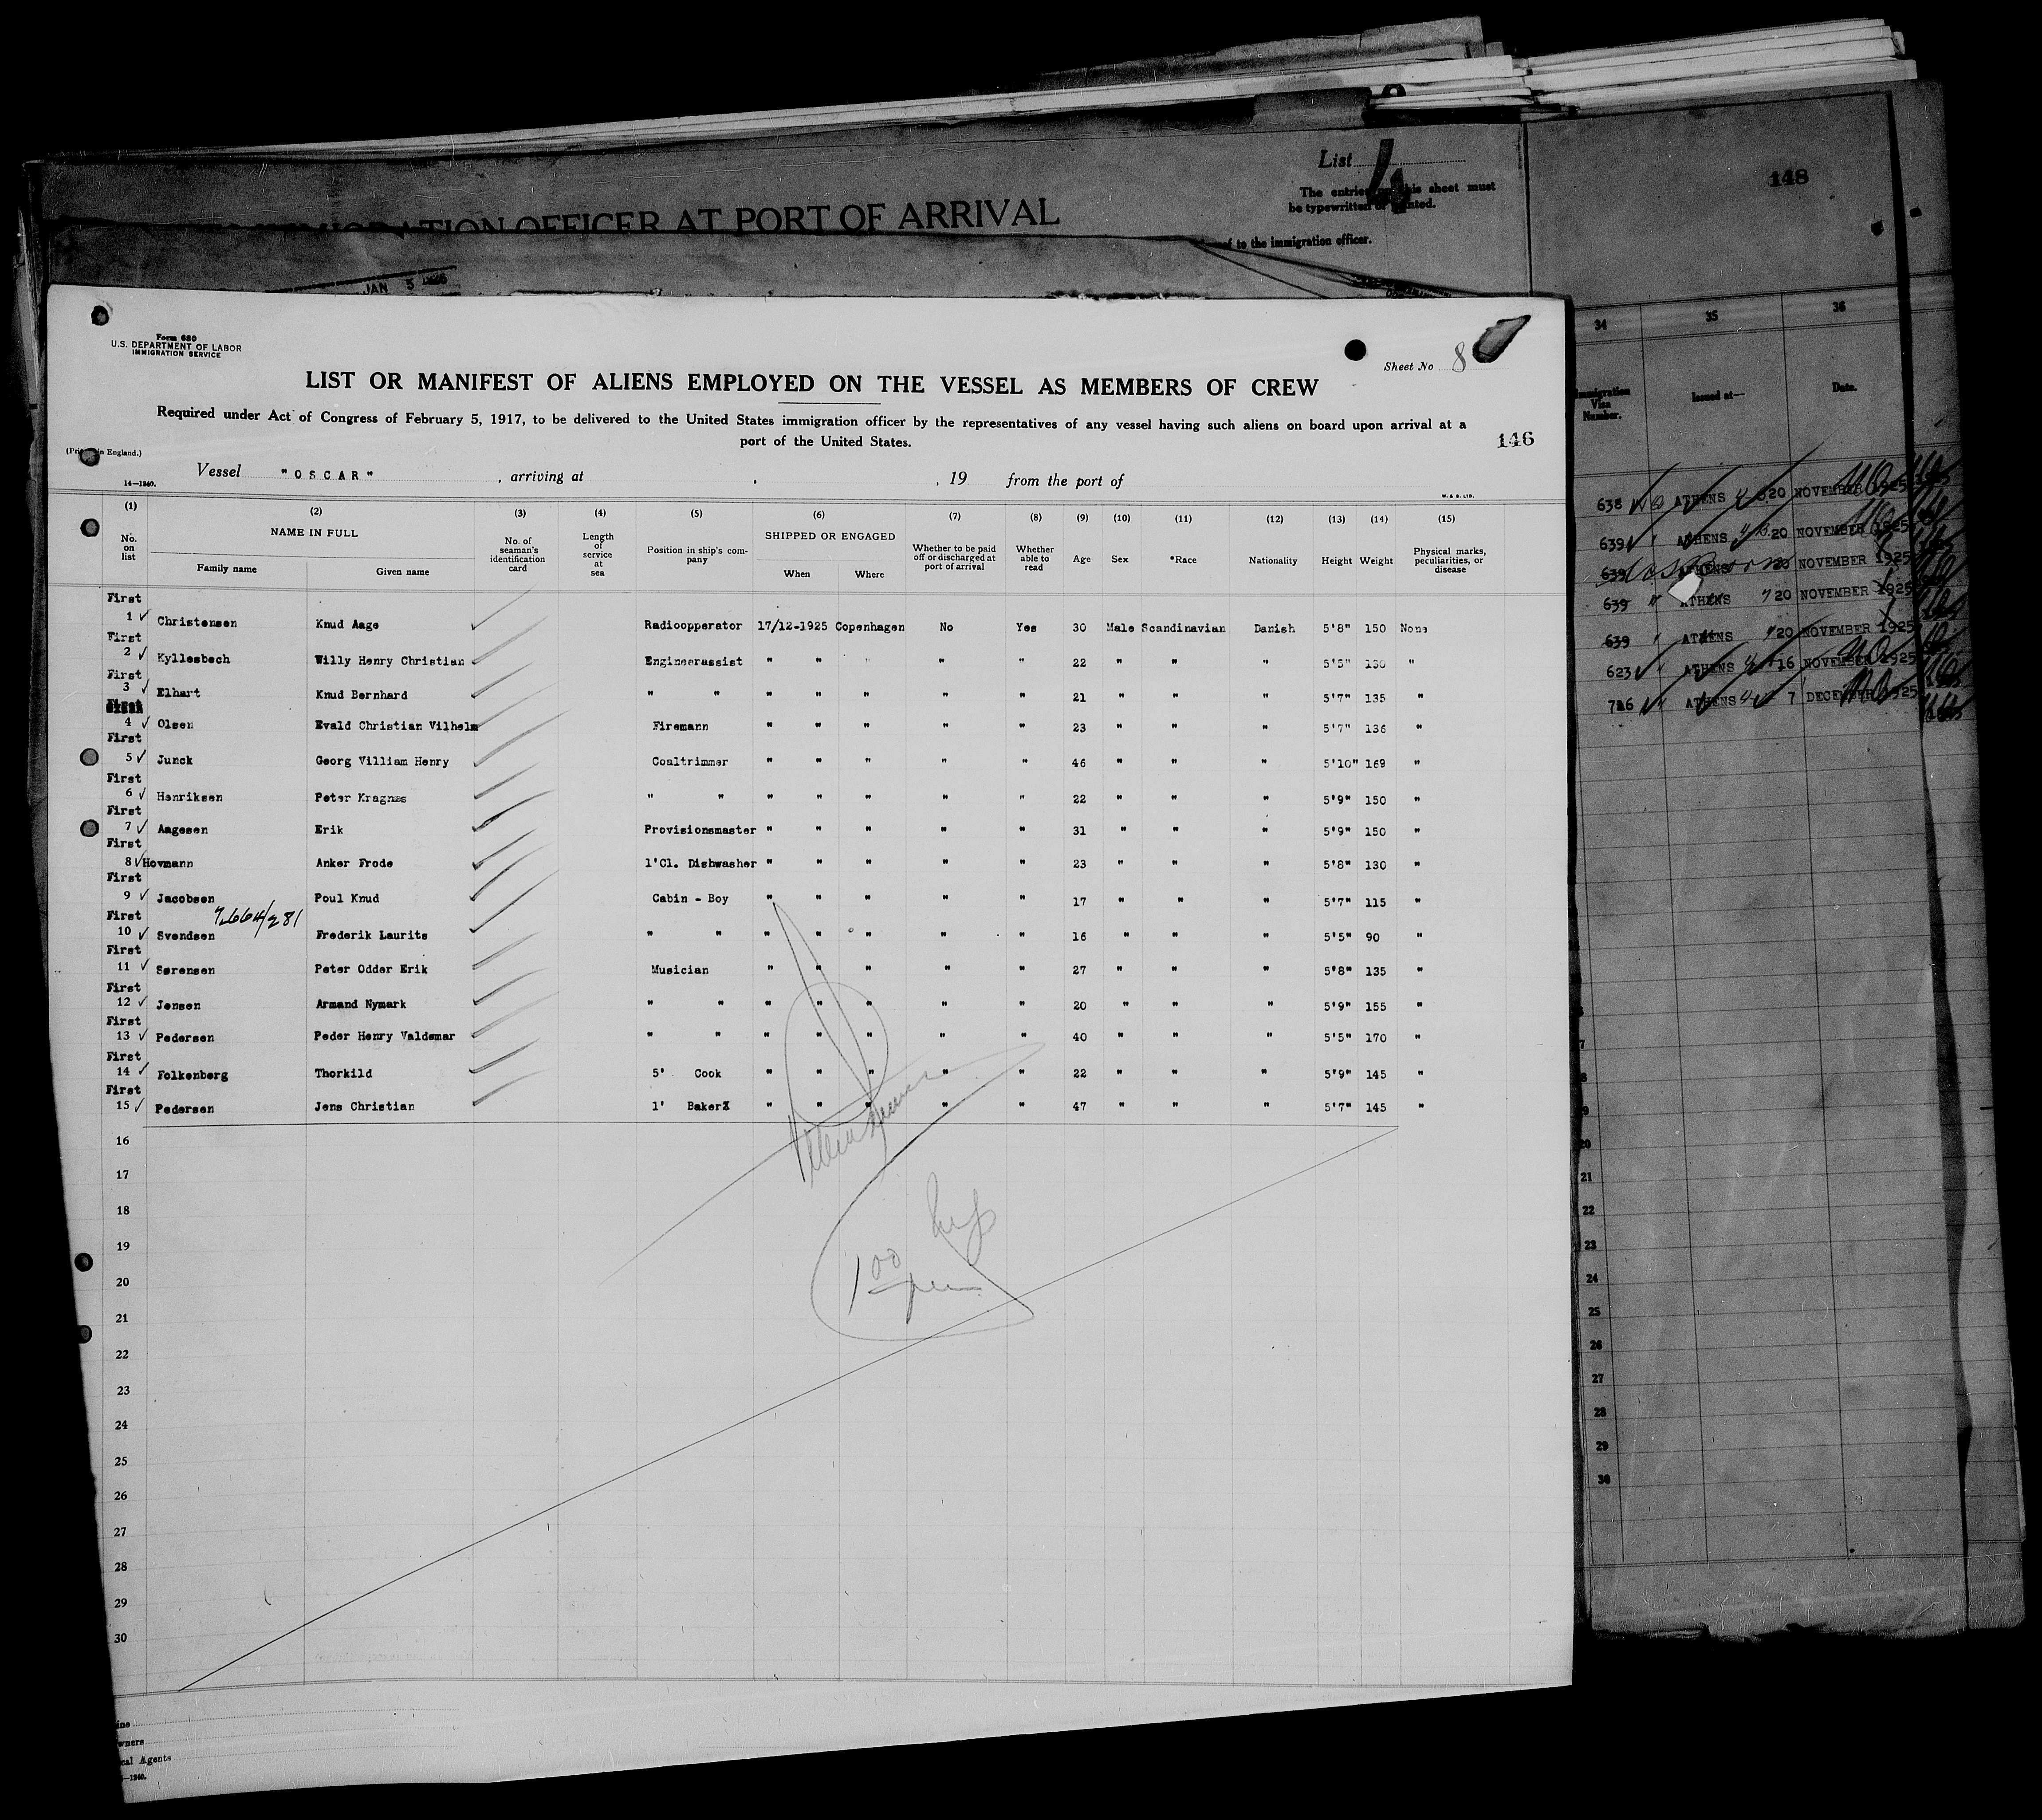 List 4
The entries on this sheet must
be typewritten or printed.
IMMIGRATION OFFICER AT PORT OF ARRIVAL
of to the immigration officer.
JAN 5
148
Form 680
U.S. DEPARTMENT OF LABOR
IMMIGRATION SERVICE
Sheet No 8
LIST OR MANIFEST OF ALIENS EMPLOYED ON THE VESSEL AS MEMBERS OF CREW
Required under Act of Congress of February 5, 1917, to be delivered to the United States immigration officer by the representatives of any vessel having such aliens on board upon arrival at a
port of the United States.
146
(Printed in England.)
Vessel "OSCAR" , arriving at , , 19 from the port of
14-1240.
W. & S. LTD.
(1) (2) (3) (4) (5) (6) (7) (8) (9) (10) (11) (12) (13) (14) (15)
No. on list NAME IN FULL Family name Given name No. of seaman's identification card Length of service at sea Position in ship's company SHIPPED OR ENGAGED When Where Whether to be paid off or discharged at port of arrival Whether able to read Age Sex *Race Nationality Height Weight Physical marks, peculiarities, or disease
First
1 Christensen Knud Aage Radioopperator 17/12-1925 Copenhagen No Yes 30 Male Scandinavian Danish 5'8" 150 None
First
2 Kyllesbech Willy Henry Christian Engineerassist " " " " " 22 " " " 5'5" 130 "
First
3 Elhart Knud Bernhard " " " " " " " 21 " " " 5'7" 135 "
First
4 Olsen Evald Christian Vilhelm Firemann " " " " " 23 " " " 5'7" 136 "
First
5 Junck Georg Villiam Henry Coaltrimmer " " " " " 46 " " " 5'10" 169 "
First
6 Henriksen Peter Kragnæs " " " " " " " 22 " " " 5'9" 150 "
First
7 Aagesen Erik Provisionsmaster " " " " " 31 " " " 5'9" 150 "
First
8 Hovmann Anker Frode 1'Cl. Dishwasher " " " " " 23 " " " 5'8" 130 "
First
9 Jacobsen Poul Knud Cabin - Boy " " " " " 17 " " " 5'7" 115 "
First
10 Svendsen Frederik Laurits " " " " " " " 16 " " " 5'5" 90 "
First
11 Sørensen Peter Odder Erik Musician " " " " " 27 " " " 5'8" 135 "
First
12 Jensen Armand Nymark " " " " " " " 20 " " " 5'9" 155 "
First
13 Pedersen Peder Henry Valdemar " " " " " " " 40 " " " 5'5" 170 "
First
14 Folkenberg Thorkild 5' Cook " " " " " 22 " " " 5'9" 145 "
First
15 Pedersen Jens Christian 1' Baker " " " " " 47 " " " 5'7" 145 "
16
17
18
19
20
21
22
23
24
25
26
27
28
29
30
1 00
owners
cal Agents
-1240.
34 35 36
Immigration Visa Number. Issued at— Date.
638 ATHENS 20 NOVEMBER 1925
639 ATHENS 20 NOVEMBER 1925
639 ATHENS 20 NOVEMBER 1925
639 ATHENS 20 NOVEMBER 1925
639 ATHENS 20 NOVEMBER 1925
623 ATHENS 16 NOVEMBER 1925
726 ATHENS 7 DECEMBER 1925
7
8
9
20
21
22
23
24
25
26
27
28
29
30